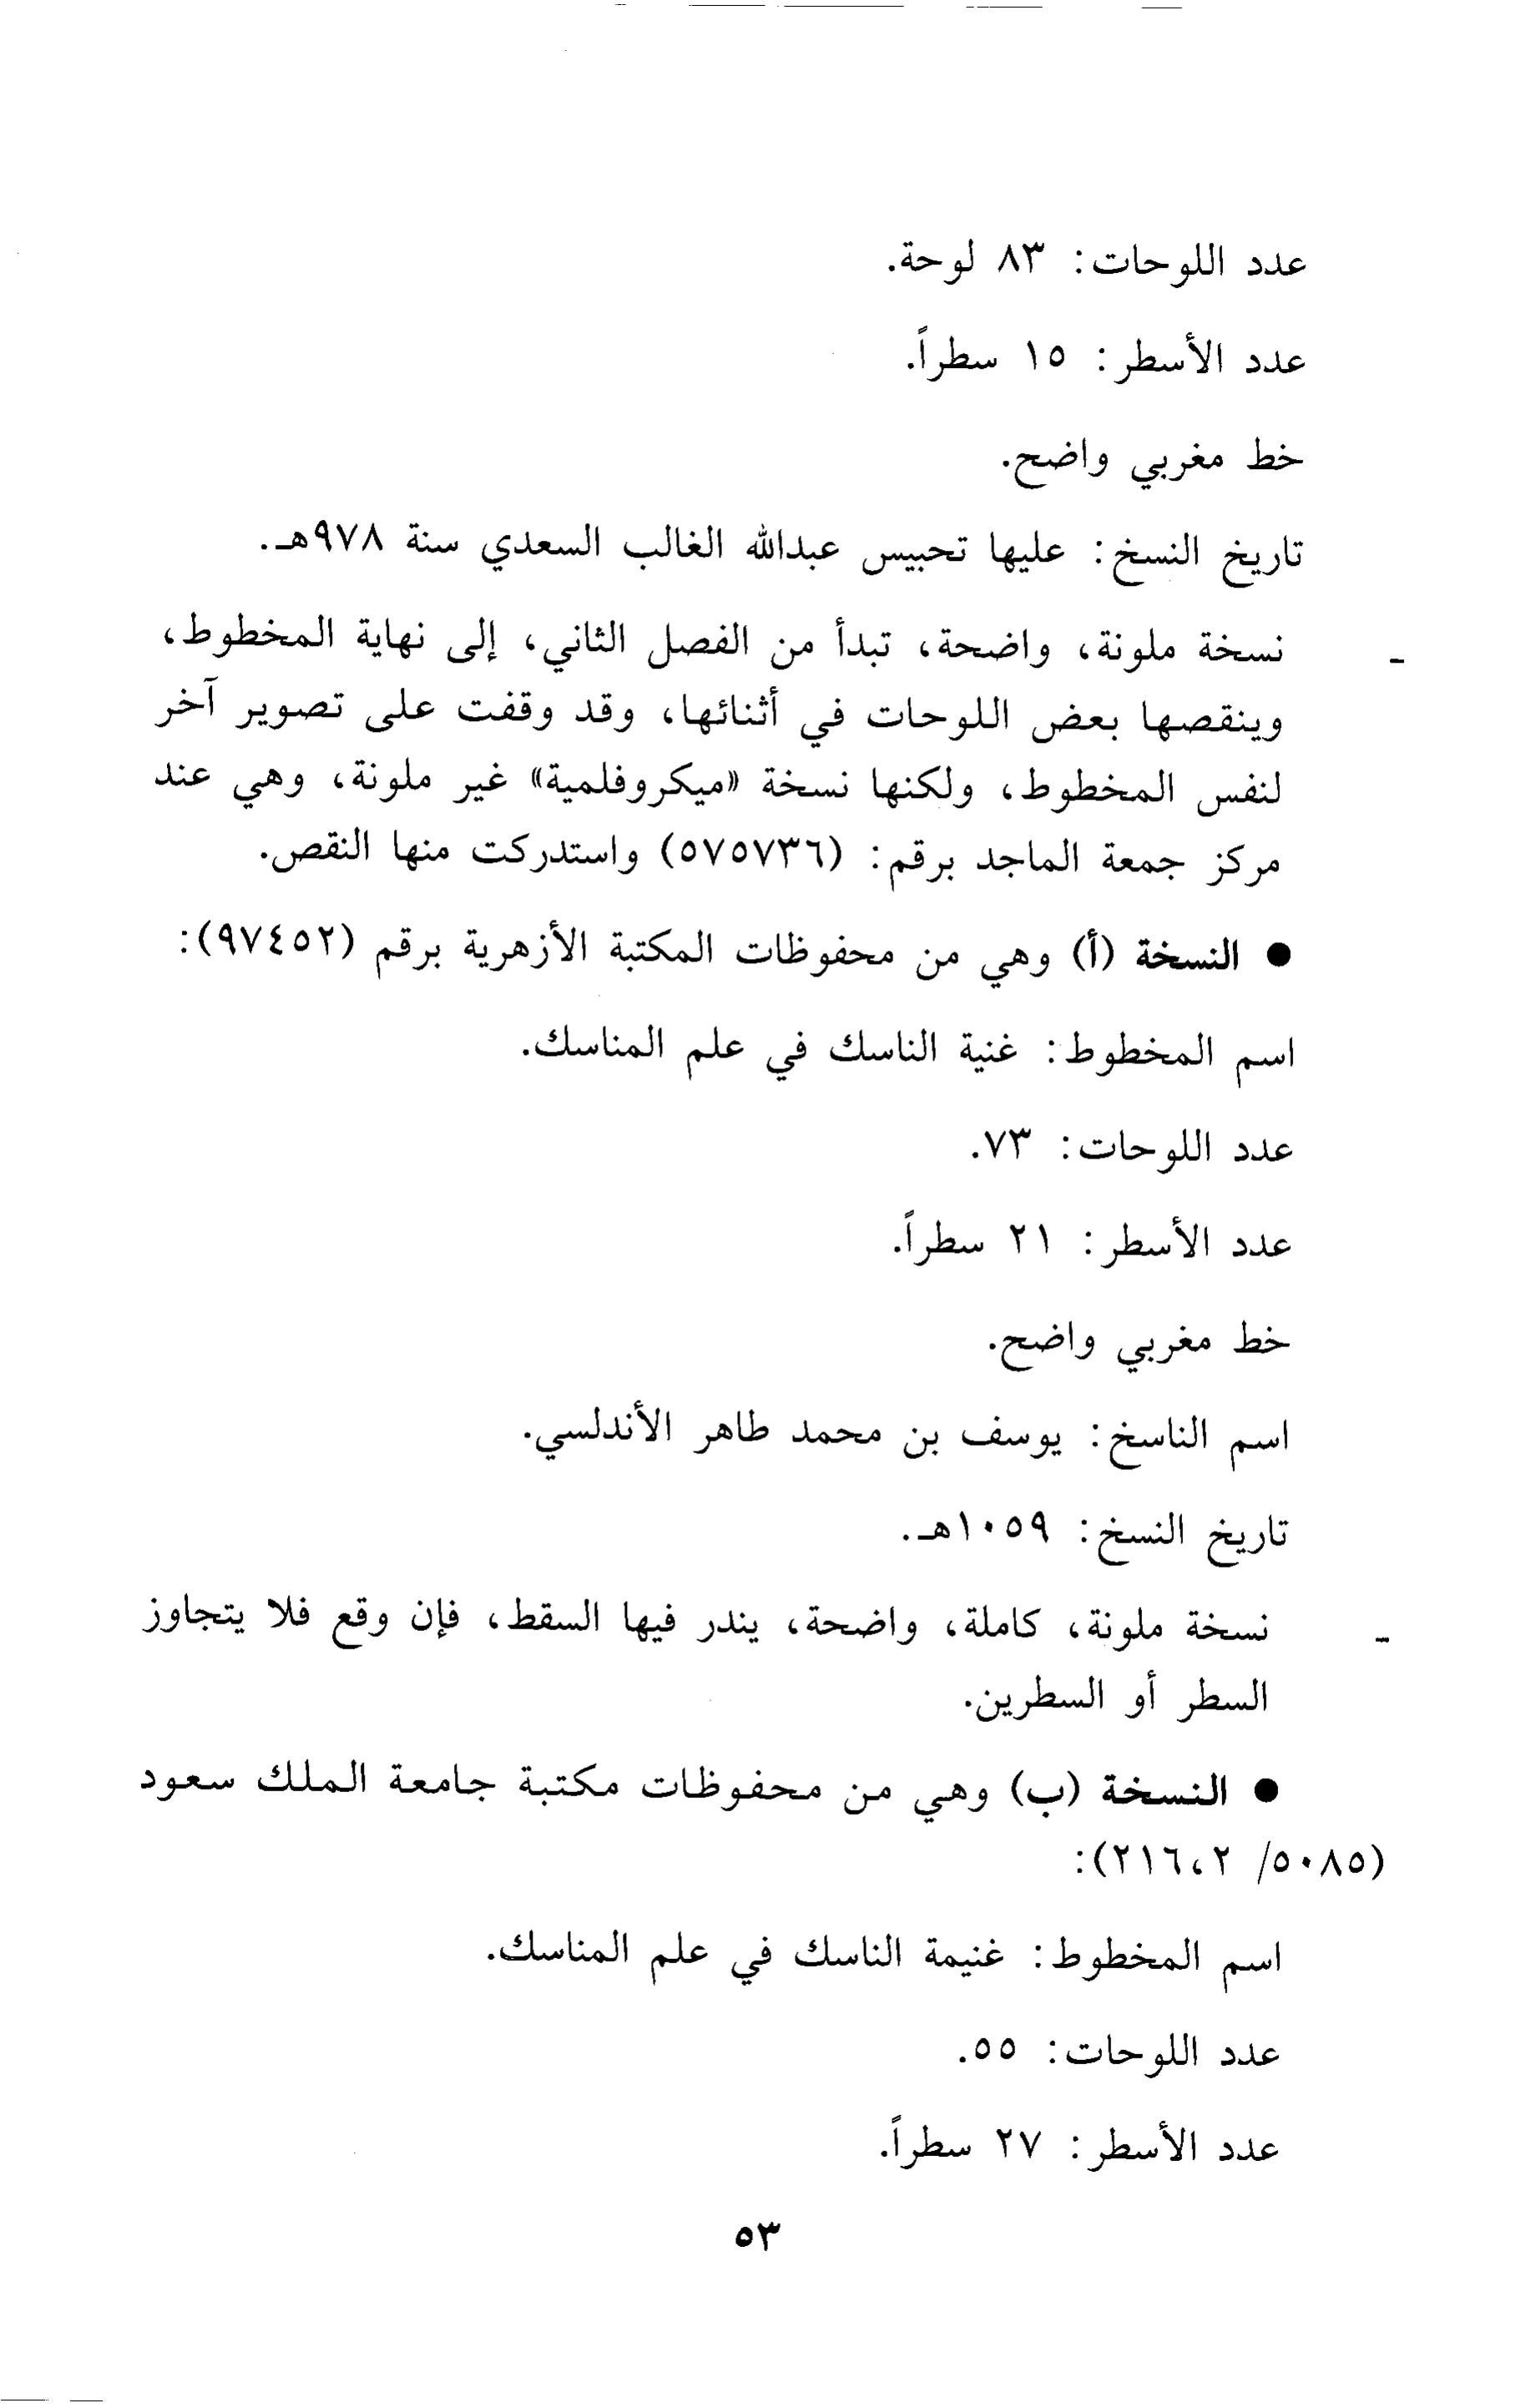 عدد اللوحات: ٨٣ لوحة.
عدد الأسطر: ١٥ سطراً.
خط مغربي واضح.
تاريخ النسخ: عليها تحبيس عبدالله الغالب السعدي سنة ٩٧٨هـ.
- نسخة ملونة، واضحة، تبدأ من الفصل الثاني، إلى نهاية المخطوط،
وينقصها بعض اللوحات في أثنائها، وقد وقفت على تصوير آخر
لنفس المخطوط، ولكنها نسخة «ميكروفلمية» غير ملونة، وهي عند
مركز جمعة الماجد برقم: (٥٧٥٧٣٦) واستدركت منها النقص.
● النسخة (أ) وهي من محفوظات المكتبة الأزهرية برقم (٩٧٤٥٢):
اسم المخطوط: غنية الناسك في علم المناسك.
عدد اللوحات: ٧٣.
عدد الأسطر: ٢١ سطراً.
خط مغربي واضح.
اسم الناسخ: يوسف بن محمد طاهر الأندلسي.
تاريخ النسخ: ١٠٥٩هـ.
- نسخة ملونة، كاملة، واضحة، يندر فيها السقط، فإن وقع فلا يتجاوز
السطر أو السطرين.
● النسخة (ب) وهي من محفوظات مكتبة جامعة الملك سعود
(٥٠٨٥/ ٢١٦،٢):
اسم المخطوط: غنيمة الناسك في علم المناسك.
عدد اللوحات: ٥٥.
عدد الأسطر: ٢٧ سطراً.
٥٣